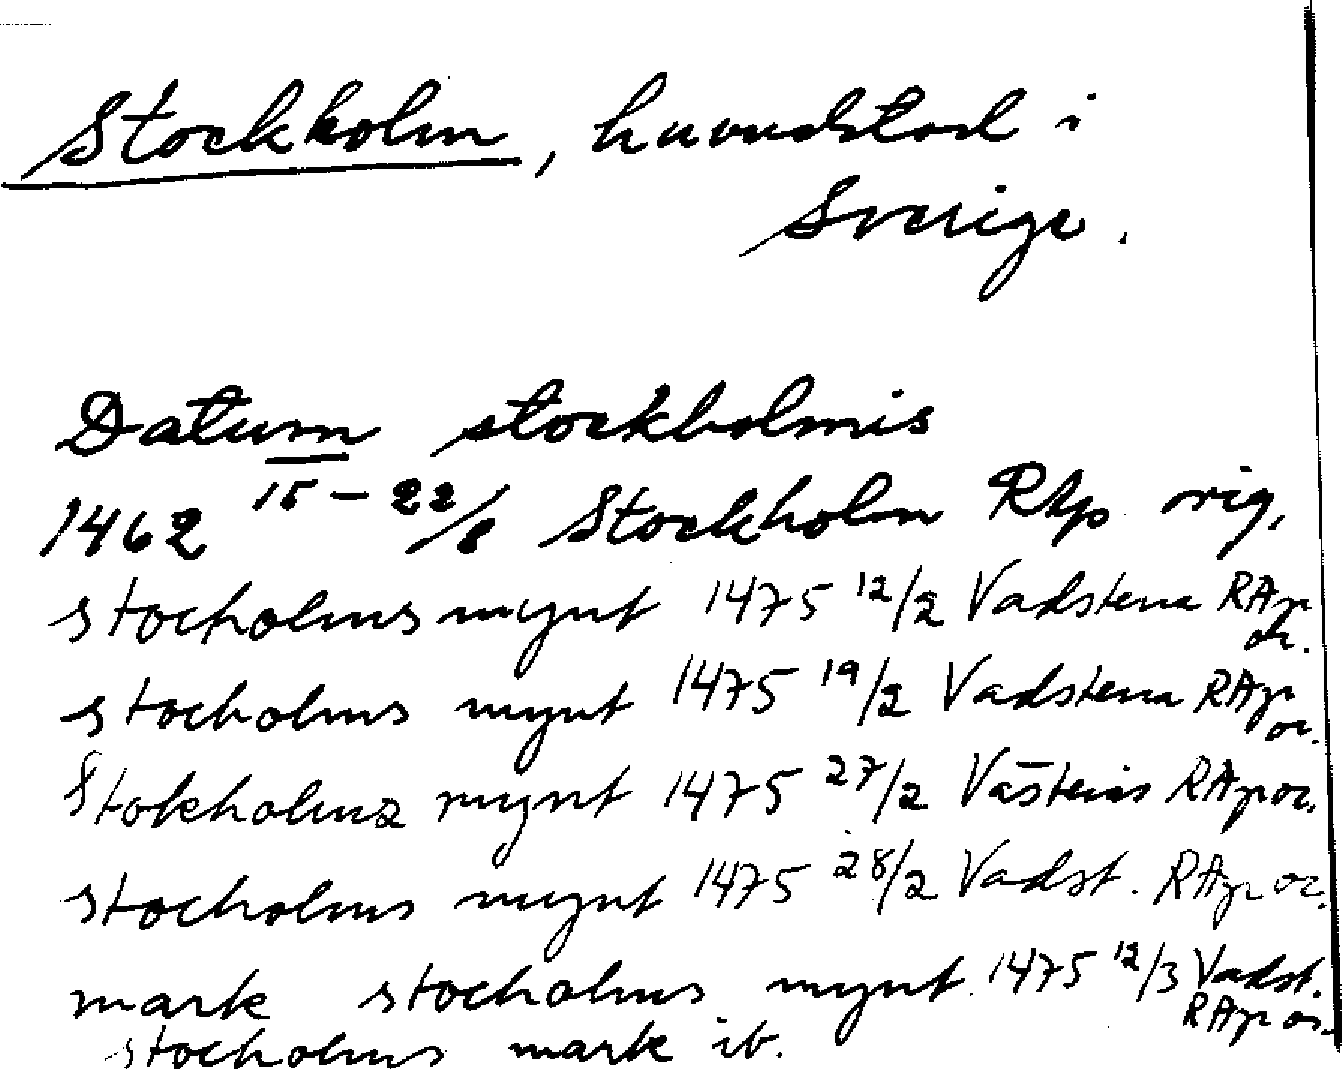 Stockholm, huvudstad i
Sverige.
Datum stockholmis
1462 15-22/8 Stockholm RAp orig.
stocholms mynt 1475 12/2 Vadstena RAp
or.
stocholms mynt 1475 19/2 Vadstena RAp
or.
Stokholms mynt 1475 27/2 Västens RAp or.
stocholms mynt 1475 28/2 Vadst. RAp or.
mark stocholms mynt 1475 12/3 Vadst.
RAp or.
stocholms mark ib.